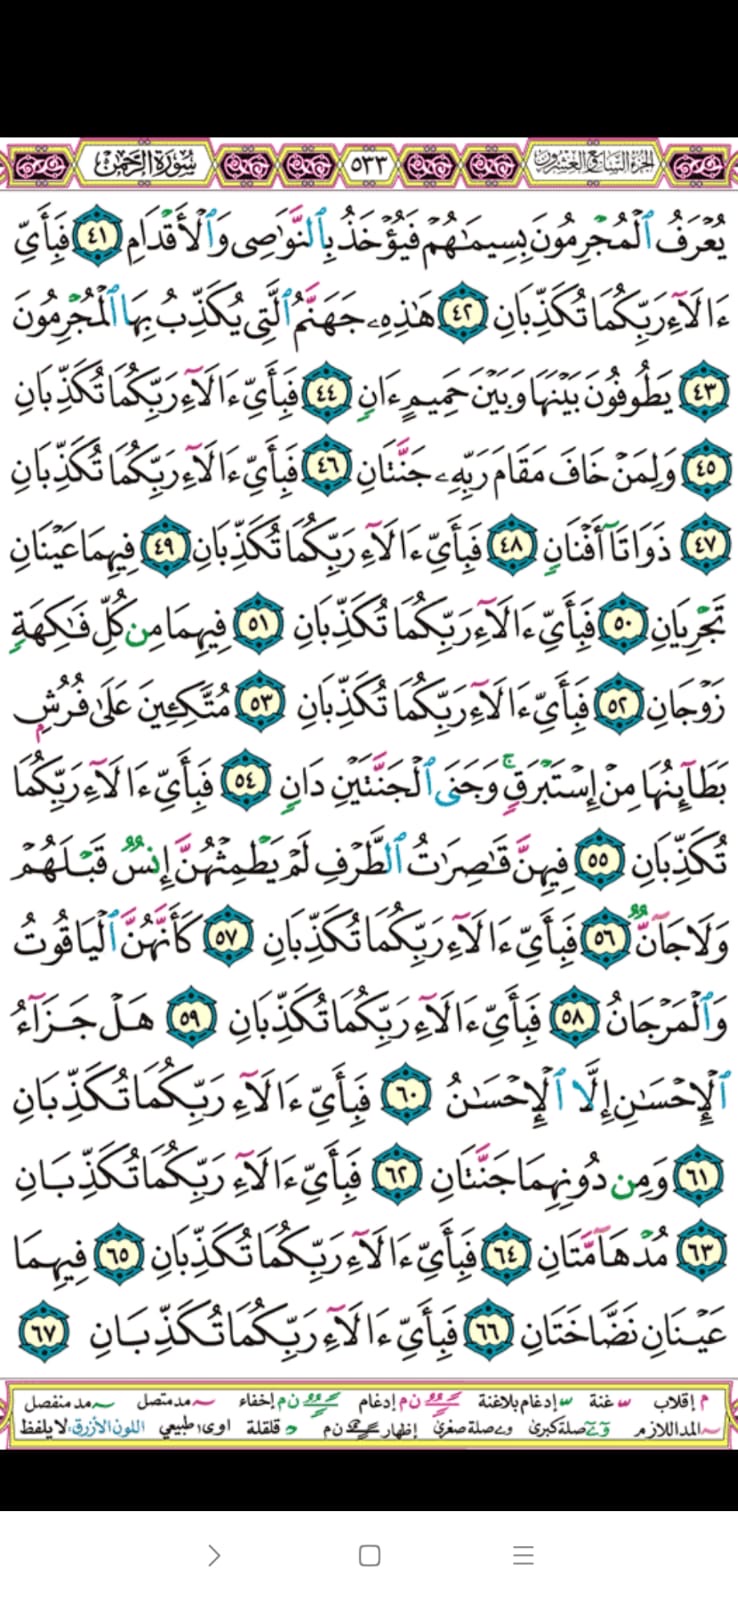 الجزء السابع والعشرون ٥٣٣ سورة الرحمن
يُعْرَفُ ٱلْمُجْرِمُونَ بِسِيمَٰهُمْ فَيُؤْخَذُ بِٱلنَّوَٰصِى وَٱلْأَقْدَامِ ٤١ فَبِأَىِّ
ءَالَآءِ رَبِّكُمَا تُكَذِّبَانِ ٤٢ هَٰذِهِۦ جَهَنَّمُ ٱلَّتِى يُكَذِّبُ بِهَا ٱلْمُجْرِمُونَ
٤٣ يَطُوفُونَ بَيْنَهَا وَبَيْنَ حَمِيمٍ ءَانٍ ٤٤ فَبِأَىِّ ءَالَآءِ رَبِّكُمَا تُكَذِّبَانِ
٤٥ وَلِمَنْ خَافَ مَقَامَ رَبِّهِۦ جَنَّتَانِ ٤٦ فَبِأَىِّ ءَالَآءِ رَبِّكُمَا تُكَذِّبَانِ
٤٧ ذَوَاتَآ أَفْنَانٍ ٤٨ فَبِأَىِّ ءَالَآءِ رَبِّكُمَا تُكَذِّبَانِ ٤٩ فِيهِمَا عَيْنَانِ
تَجْرِيَانِ ٥٠ فَبِأَىِّ ءَالَآءِ رَبِّكُمَا تُكَذِّبَانِ ٥١ فِيهِمَا مِن كُلِّ فَٰكِهَةٍ
زَوْجَانِ ٥٢ فَبِأَىِّ ءَالَآءِ رَبِّكُمَا تُكَذِّبَانِ ٥٣ مُتَّكِـِٔينَ عَلَىٰ فُرُشٍۭ
بَطَآئِنُهَا مِنْ إِسْتَبْرَقٍ ۚ وَجَنَى ٱلْجَنَّتَيْنِ دَانٍ ٥٤ فَبِأَىِّ ءَالَآءِ رَبِّكُمَا
تُكَذِّبَانِ ٥٥ فِيهِنَّ قَٰصِرَٰتُ ٱلطَّرْفِ لَمْ يَطْمِثْهُنَّ إِنسٌ قَبْلَهُمْ
وَلَا جَآنٌّ ٥٦ فَبِأَىِّ ءَالَآءِ رَبِّكُمَا تُكَذِّبَانِ ٥٧ كَأَنَّهُنَّ ٱلْيَاقُوتُ
وَٱلْمَرْجَانُ ٥٨ فَبِأَىِّ ءَالَآءِ رَبِّكُمَا تُكَذِّبَانِ ٥٩ هَلْ جَزَآءُ
ٱلْإِحْسَٰنِ إِلَّا ٱلْإِحْسَٰنُ ٦٠ فَبِأَىِّ ءَالَآءِ رَبِّكُمَا تُكَذِّبَانِ
٦١ وَمِن دُونِهِمَا جَنَّتَانِ ٦٢ فَبِأَىِّ ءَالَآءِ رَبِّكُمَا تُكَذِّبَانِ
٦٣ مُدْهَآمَّتَانِ ٦٤ فَبِأَىِّ ءَالَآءِ رَبِّكُمَا تُكَذِّبَانِ ٦٥ فِيهِمَا
عَيْنَانِ نَضَّاخَتَانِ ٦٦ فَبِأَىِّ ءَالَآءِ رَبِّكُمَا تُكَذِّبَانِ ٦٧
م إقلاب غنة إدغام بلاغنة ن م إدغام ن م إخفاء مد متصل مد منفصل
المد اللازم صلة كبرى صلة صغرى إظهار ن م قلقلة اوى طبيعي اللون الأزرق: لا يلفظ